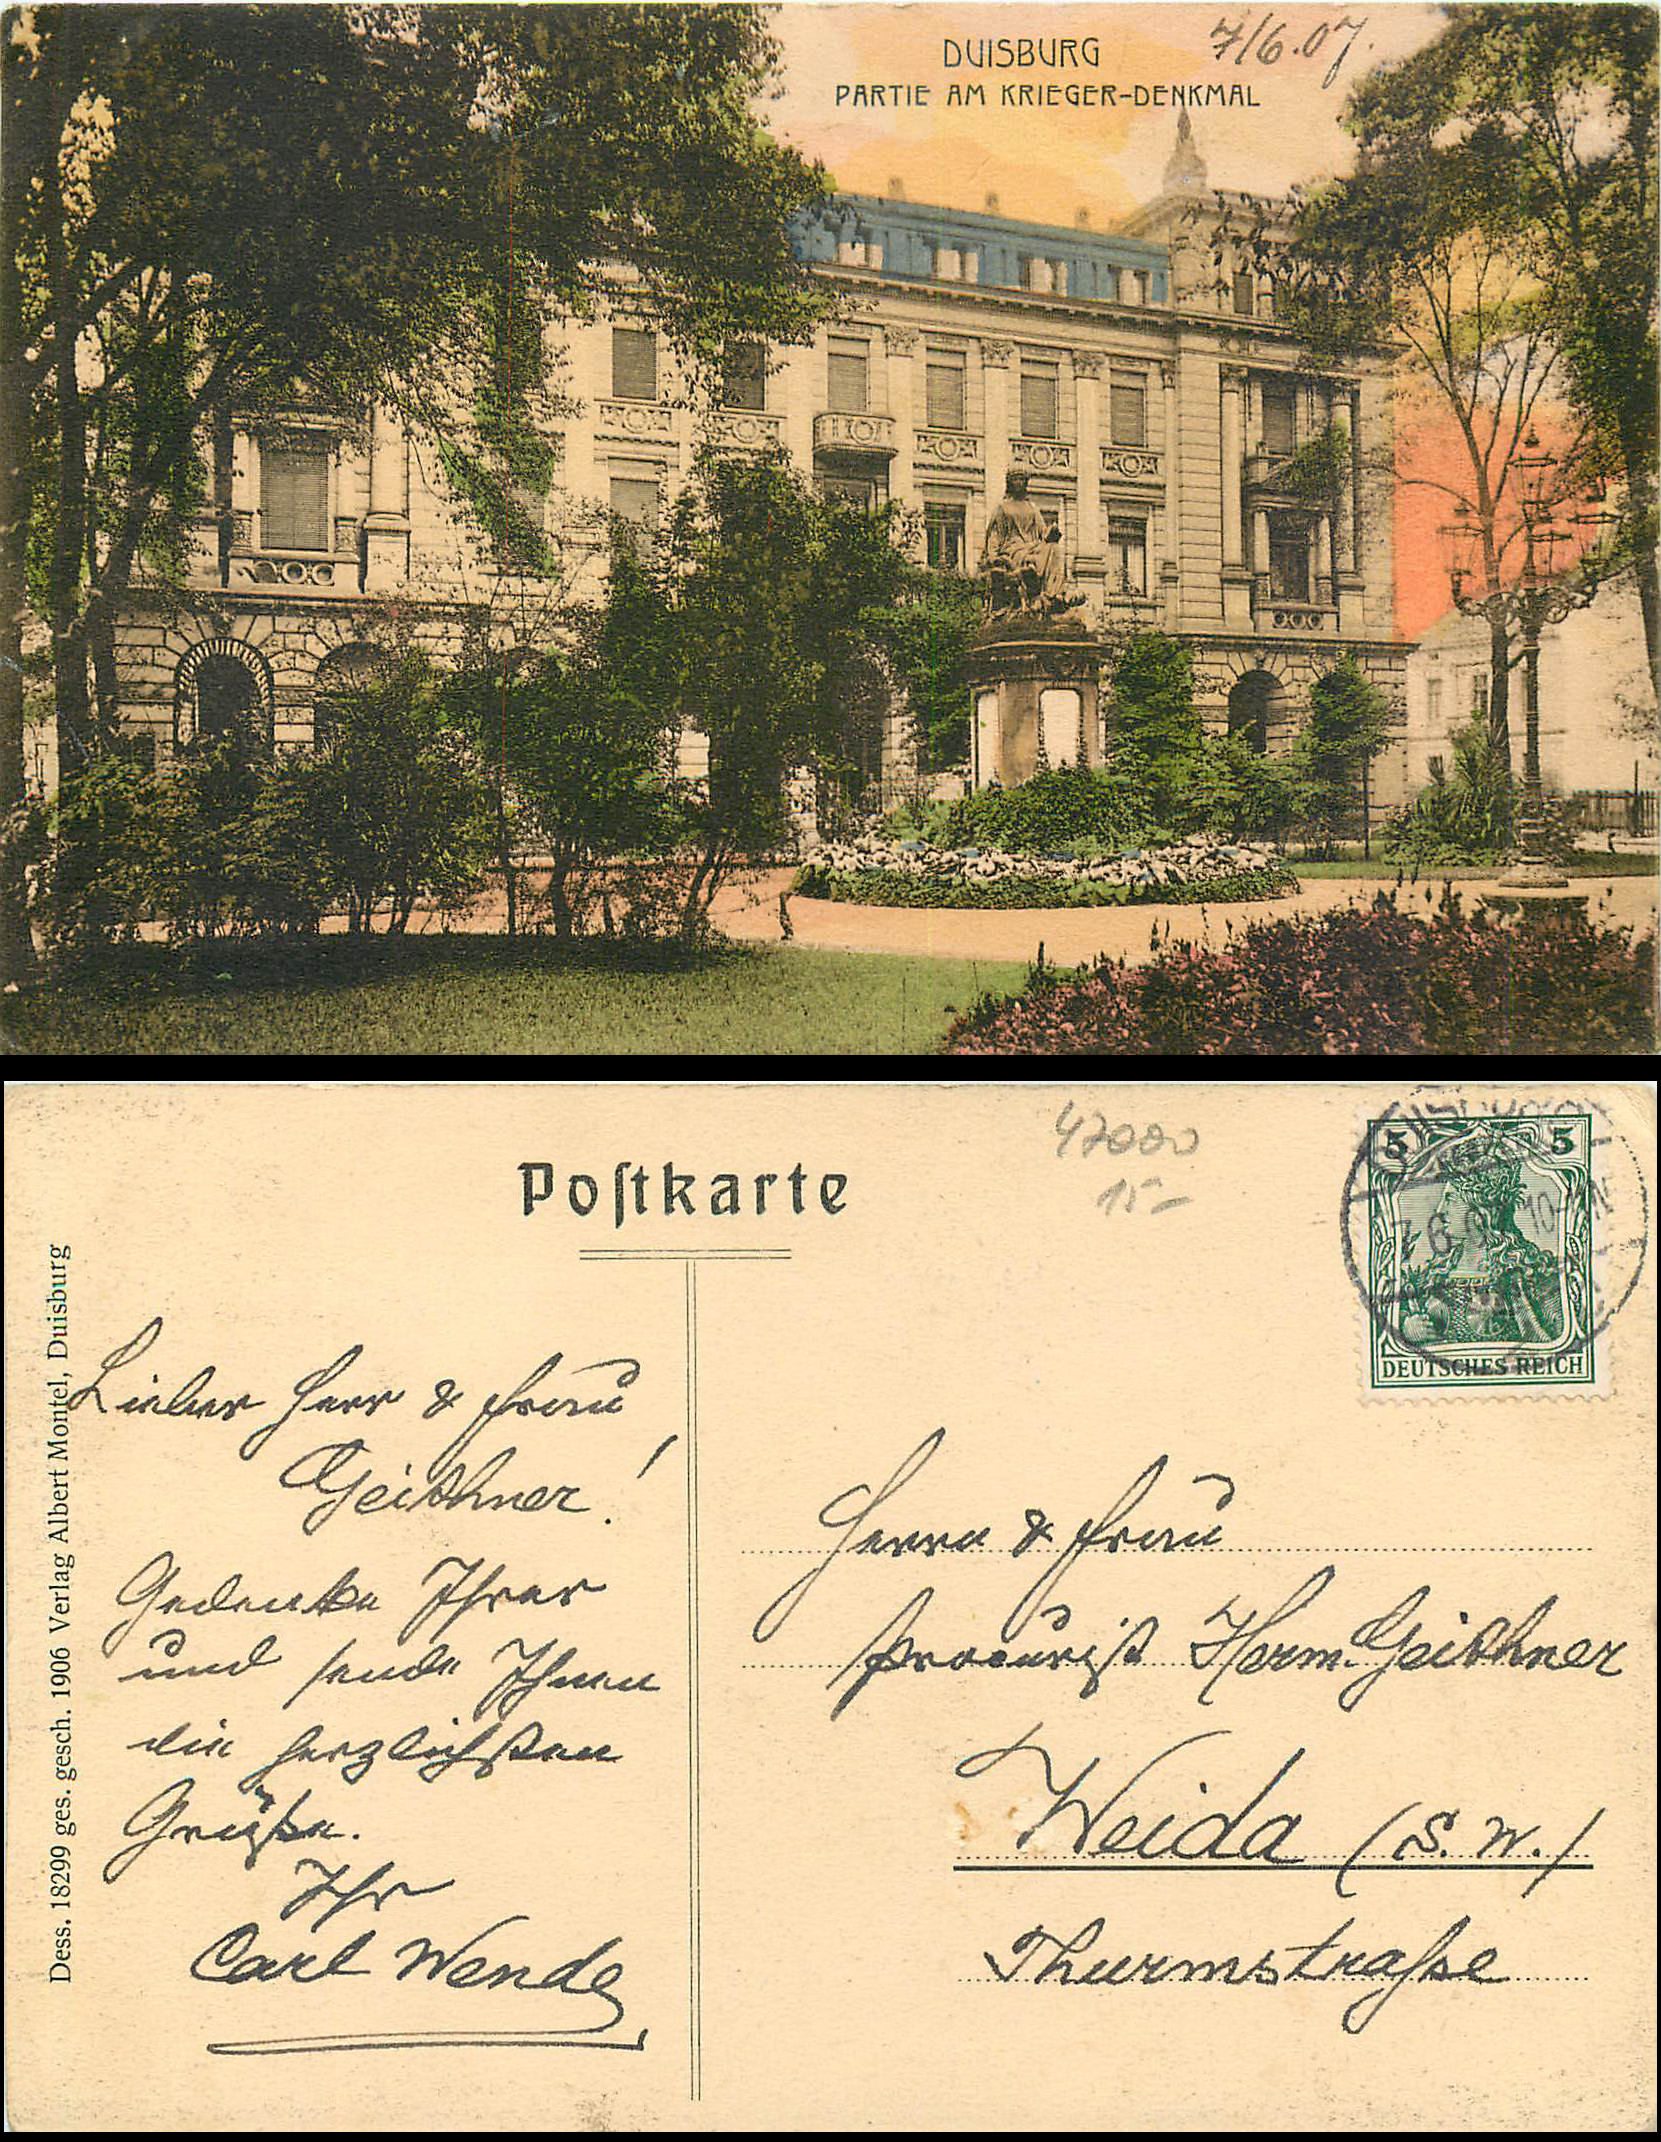 DUISBURG
PARTIE AM KRIEGER-DENKMAL
7/6.07.
Poſtkarte
47000
15-
5 5
7.6.0 10-11
DEUTSCHES REICH
Dess. 18299 ges. gesch. 1906 Verlag Albert Montel, Duisburg
Lieber Herr & Frau
Geithner!
Gedenke Ihrer
und sende Ihnen
die herzlichsten
Grüße.
Ihr
Carl Wende
Herrn & Frau
Procurist Herm. Geithner
Weida (S. W.)
Thurmstraße